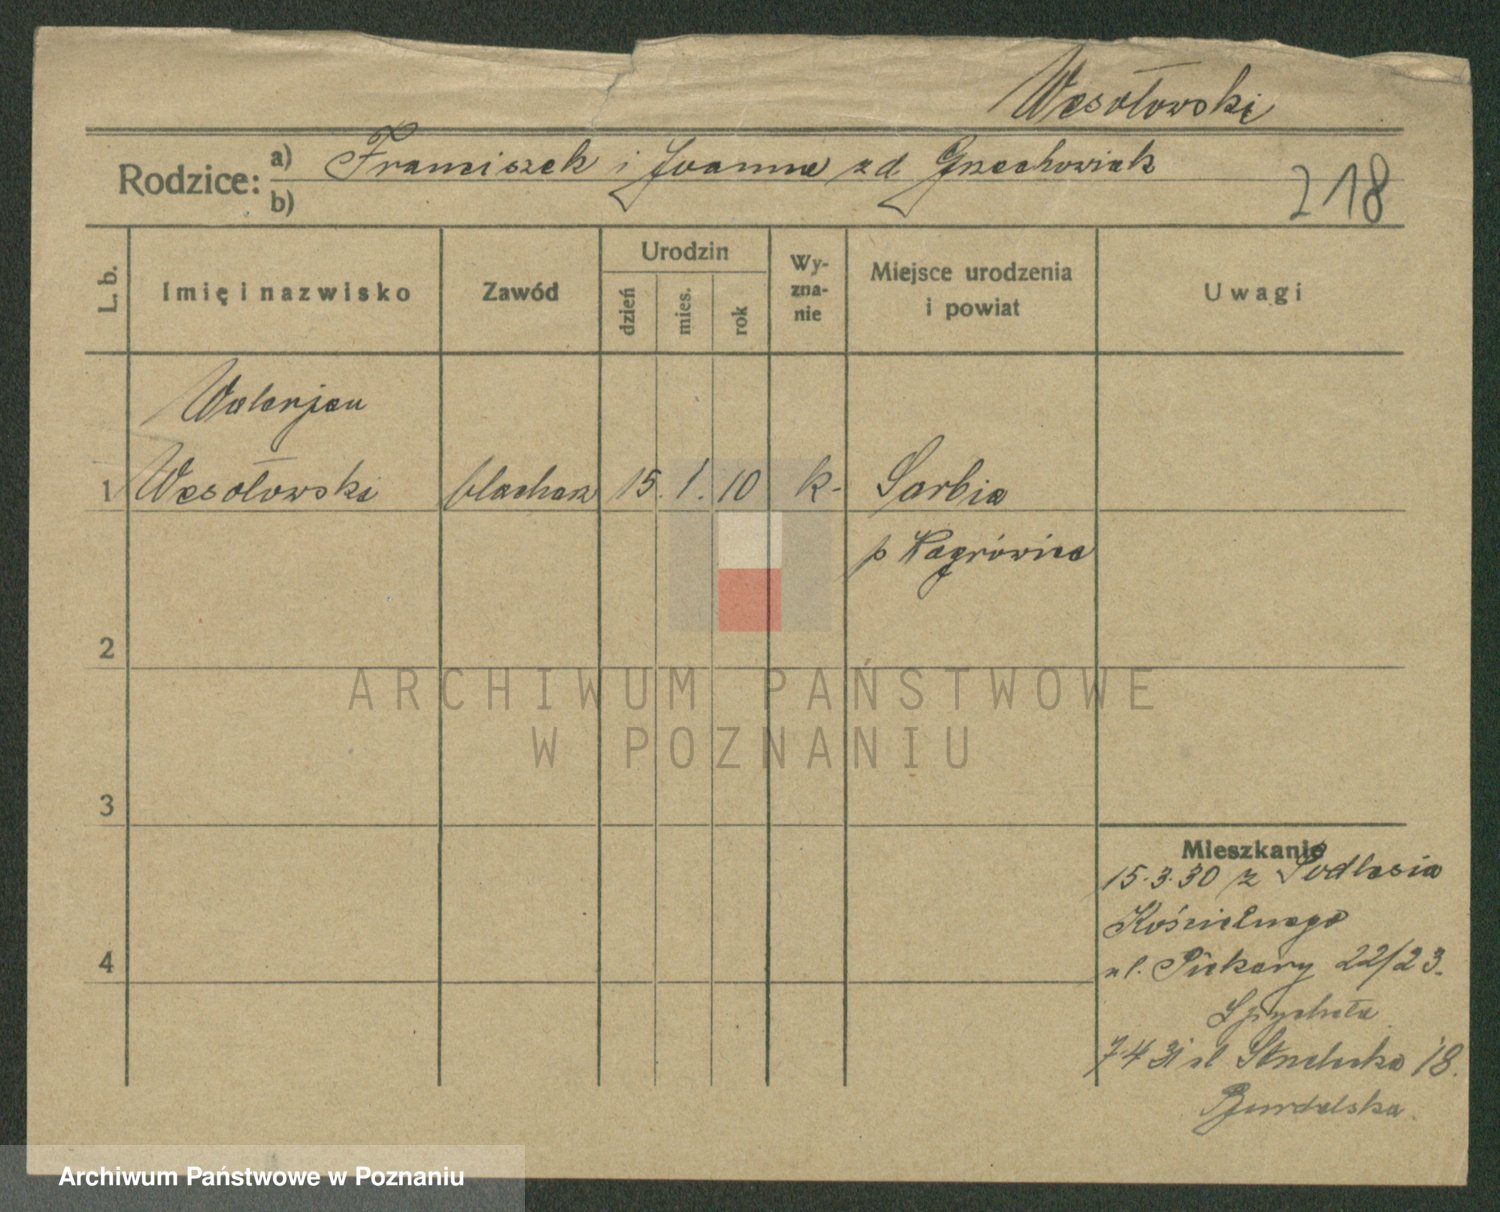 Wesołowski
Rodzice: a) Franciszek i Joanna zd Grzechowiak
b)
218
L. b.
Imię i nazwisko
Zawód
Urodzin
dzień
mies.
rok
Wy-
zna-
nie
Miejsce urodzenia
i powiat
Uwagi
Walerjan
1 Wesołowski blacharz 15. 1. 10 k. Sarbia
p Wągrówiec
2
3
4
Mieszkanie
15.3.30 z Podlesia
Kościelnego
ul. Piekary 22/23.
Spychała
7 4 31 ul Strzelecka 18.
ARCHIWUM PAŃSTWOWE
W POZNANIU
Archiwum Państwowe w Poznaniu